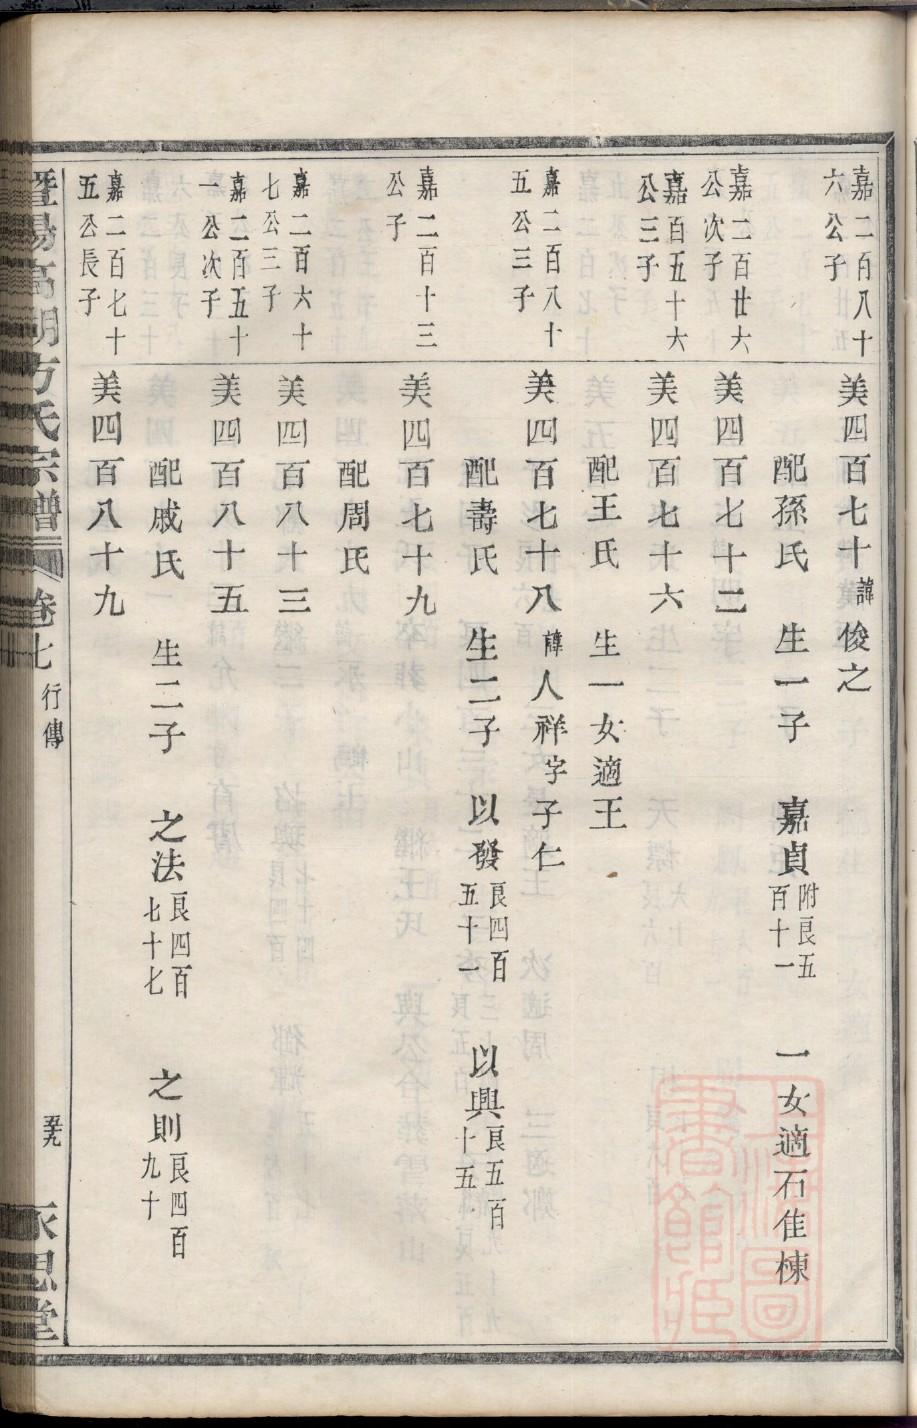 嘉二百八十六公子
美四百七十諱俊之
配孫氏 生一子 嘉貞附良五百十一 一女適石佳棟
嘉二百廿六公次子
美四百七十二
嘉百五十六公三子
美四百七十六
配王氏 生一女適王
嘉二百八十五公三子
美四百七十八諱人祥字子仁
配壽氏 生二子 以發良四百五十一 以興良五百十五
嘉二百十三公子
美四百七十九
配周氏
嘉二百六十七公三子
美四百八十三
嘉二百五十一公次子
美四百八十五
配戚氏 生二子 之法良四百七十七 之則良四百九十
嘉二百七十五公長子
美四百八十九
暨陽高湖方氏宗譜 卷七 行傳 五九 永思堂